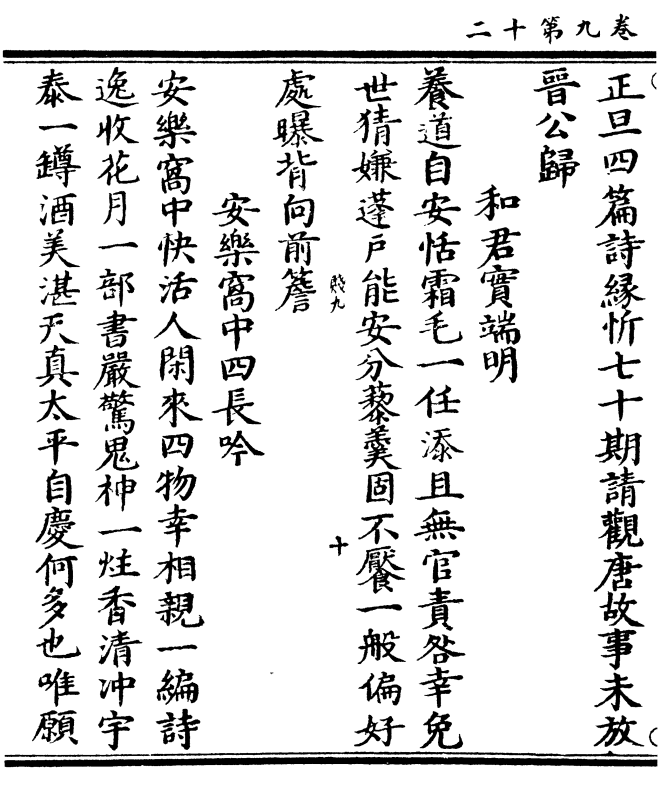 二十第九卷
正旦四篇詩緣忻七十期請觀唐故事未放
晉公歸
和君實端明
養道自安恬霜毛一任添且無官責咎幸免
世猜嫌蓬戶能安分藜羹固不饜一般偏好
處曝背向前簷
安樂窩中四長吟
安樂窩中快活人閑來四物幸相親一編詩
逸收花月一部書嚴驚鬼神一炷香清冲宇
泰一罇酒美湛天真太平自慶何多也唯願
十